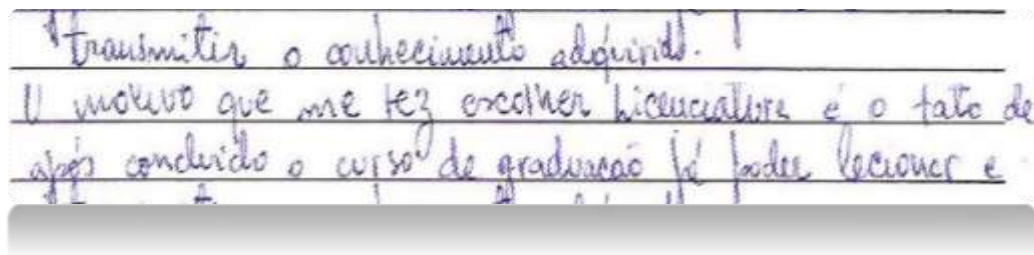 transmitir o conhecimento adquirido.
O motivo que me fez escolher Licenciatura é o fato de
após concluído o curso de graduação já poder lecionar e